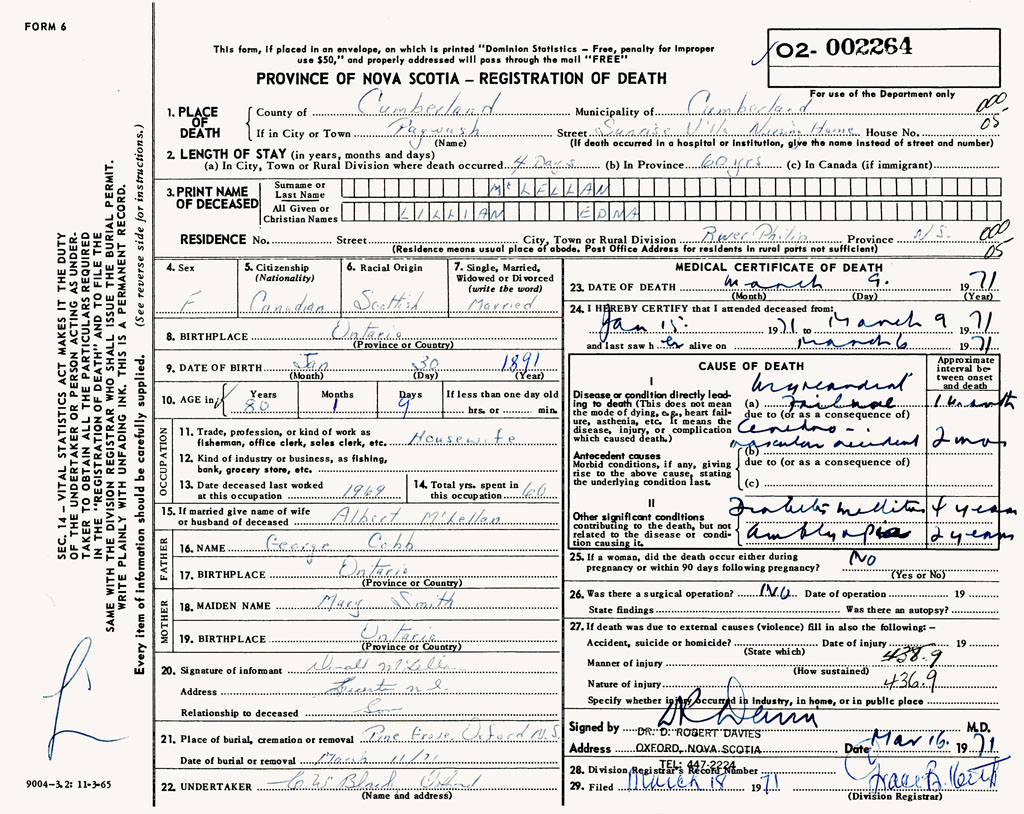 FORM 6
This form, if placed in an envelope, on which is printed "Dominion Statistics – Free, penalty for improper
use $50," and properly addressed will pass through the mail "FREE"
O2- 002264
For use of the Department only
PROVINCE OF NOVA SCOTIA – REGISTRATION OF DEATH
1. PLACE OF DEATH
County of Cumberland Municipality of Cumberland 000
If in City or Town Pugwash Street Sunrise Villa Nursing Home House No. 05
(Name) (If death occurred in a hospital or institution, give the name instead of street and number)
2. LENGTH OF STAY (in years, months and days)
(a) In City, Town or Rural Division where death occurred 4 Days (b) In Province 60 yrs (c) In Canada (if immigrant)
3. PRINT NAME OF DECEASED
Surname or Last Name McLELLAN
All Given or Christian Names LILLIAN EDNA
RESIDENCE No. Street City, Town or Rural Division River Philip Province N.S. 000
(Residence means usual place of abode. Post Office Address for residents in rural parts not sufficient) 05
4. Sex F
5. Citizenship (Nationality) Canadian
6. Racial Origin Scottish
7. Single, Married, Widowed or Divorced (write the word) Married
8. BIRTHPLACE Ontario
(Province or Country)
9. DATE OF BIRTH Jan 30 1891
(Month) (Day) (Year)
10. AGE in Years 80 Months 1 Days 9 If less than one day old hrs. or min.
OCCUPATION
11. Trade, profession, or kind of work as fisherman, office clerk, sales clerk, etc. Housewife
12. Kind of industry or business, as fishing, bank, grocery store, etc.
13. Date deceased last worked at this occupation 1969
14. Total yrs. spent in this occupation 60
15. If married give name of wife or husband of deceased Albert McLellan
FATHER
16. NAME George Cobb
17. BIRTHPLACE Ontario
(Province or Country)
MOTHER
18. MAIDEN NAME Mary Smith
19. BIRTHPLACE Ontario
(Province or Country)
20. Signature of informant Donald McLellan
Address N.S.
Relationship to deceased Son
21. Place of burial, cremation or removal Pine Grove, Oxford N.S.
Date of burial or removal March 11/71
22. UNDERTAKER Oxford
(Name and address)
MEDICAL CERTIFICATE OF DEATH
23. DATE OF DEATH March 9. 1971
(Month) (Day) (Year)
24. I HEREBY CERTIFY that I attended deceased from:
Jan 15. 1971 to March 9 1971
and last saw her alive on March 6 1971
CAUSE OF DEATH
Approximate interval between onset and death
I
Disease or condition directly leading to death (This does not mean the mode of dying, e.g., heart failure, asthenia, etc. It means the disease, injury, or complication which caused death.)
Myocardial
(a) Failure 1 month
due to (or as a consequence of)
Cerebro-
vascular accident 2 mos
Antecedent causes
Morbid conditions, if any, giving rise to the above cause, stating the underlying condition last.
(b)
due to (or as a consequence of)
(c)
II
Other significant conditions contributing to the death, but not related to the disease or condition causing it.
Diabetes Mellitus 4 years
Amblyopia 2 years
25. If a woman, did the death occur either during pregnancy or within 90 days following pregnancy? No
(Yes or No)
26. Was there a surgical operation? No Date of operation 19
State findings Was there an autopsy?
27. If death was due to external causes (violence) fill in also the following: –
Accident, suicide or homicide? Date of injury 19
(State which)
Manner of injury 438.9
(How sustained)
Nature of injury 436.9
Specify whether injury occurred in Industry, in home, or in public place
Signed by M.D.
DR. D. ROBERT DAVIES
Address OXFORD, NOVA SCOTIA Date Mar 16. 1971
TEL: 447-2224
28. Division Registrar's Record Number
29. Filed March 18 1971
(Division Registrar)
SEC. 14 – VITAL STATISTICS ACT MAKES IT THE DUTY
OF THE UNDERTAKER OR PERSON ACTING AS UNDER-
TAKER TO OBTAIN ALL THE PARTICULARS REQUIRED
IN THE "REGISTRATION OF DEATH" AND TO FILE THE
SAME WITH THE DIVISION REGISTRAR WHO SHALL ISSUE THE BURIAL PERMIT.
WRITE PLAINLY WITH UNFADING INK. THIS IS A PERMANENT RECORD.
Every item of information should be carefully supplied. (See reverse side for instructions.)
9004–3.2: 11-3-65